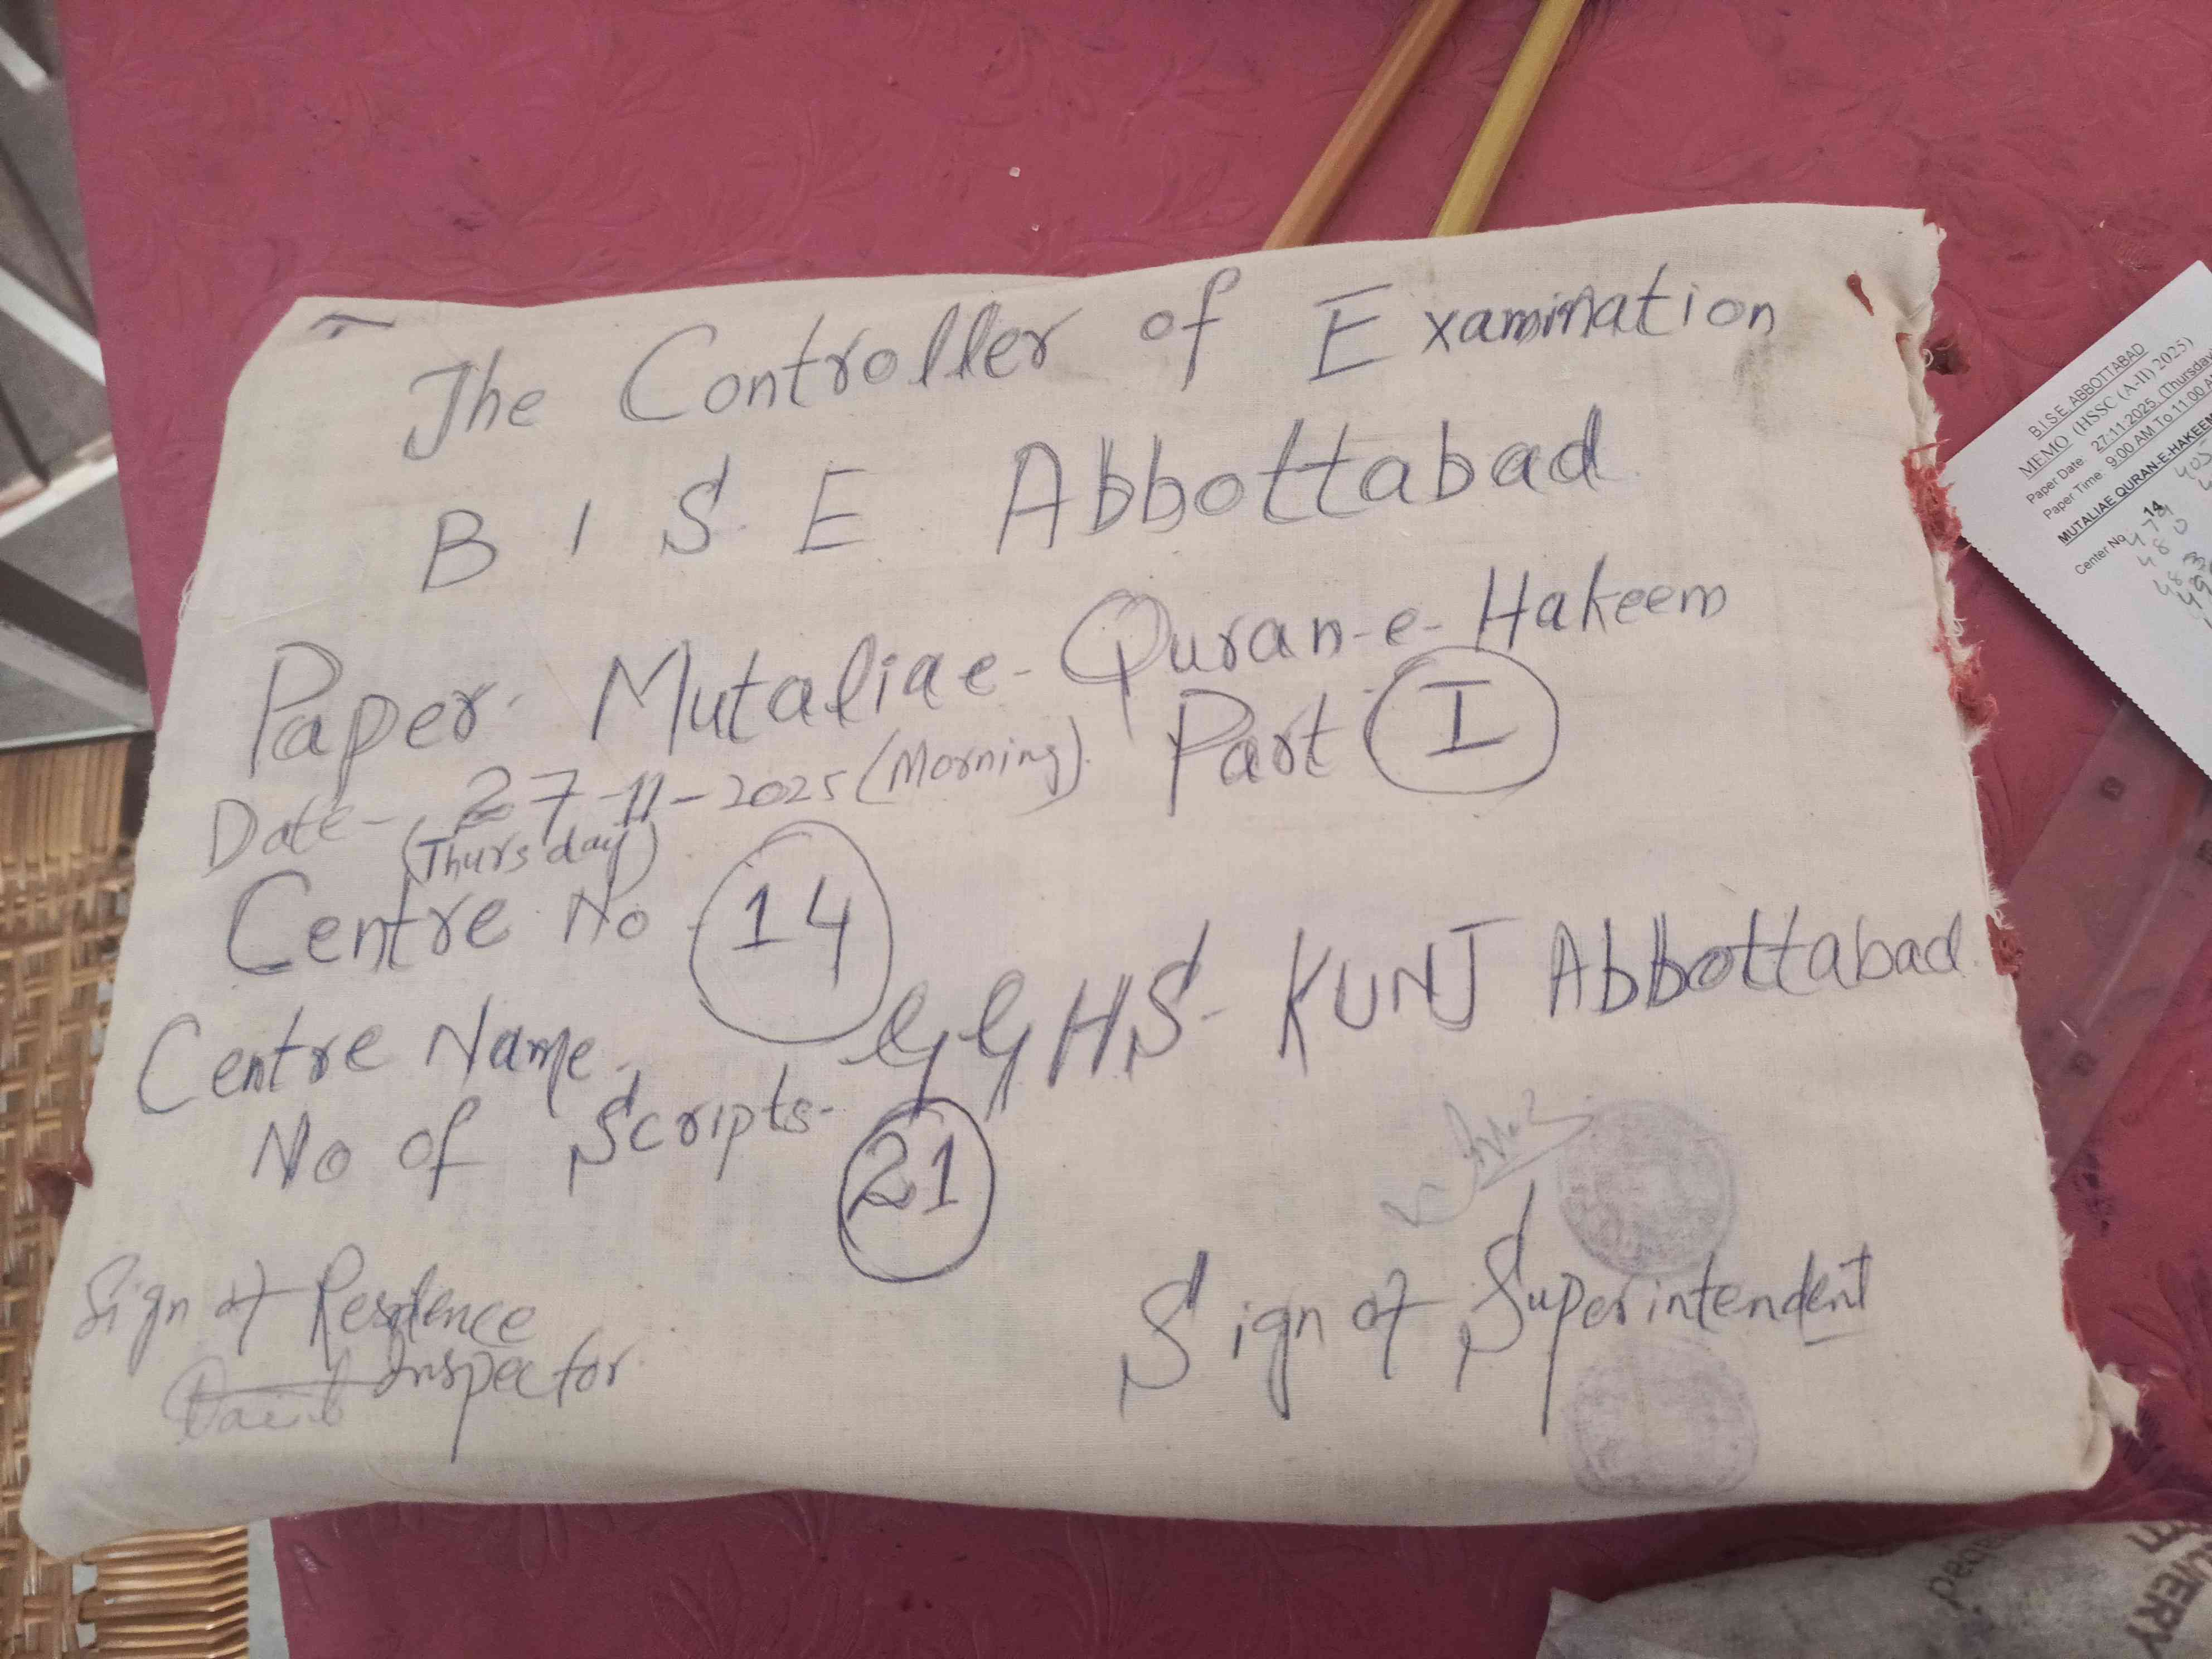 The Controller of Examination
B I S E Abbottabad
Paper- Mutaliae-Quran-e-Hakeem
Part I
Date- 27-11-2025 (Morning)
(Thursday)
Centre No- 14
Centre Name- GGHS- KUNJ Abbottabad
No of Scripts- 21
Sign of Residence
Inspector
Sign of Superintendent
B.I.S.E. ABBOTTABAD
MEMO (HSSC (A-II) 2025)
Paper Date: 27.11.2025, (Thursday
Paper Time: 9:00 AM To 11:00 A
MUTALIAE QURAN-E-HAKEEM
Center No 14